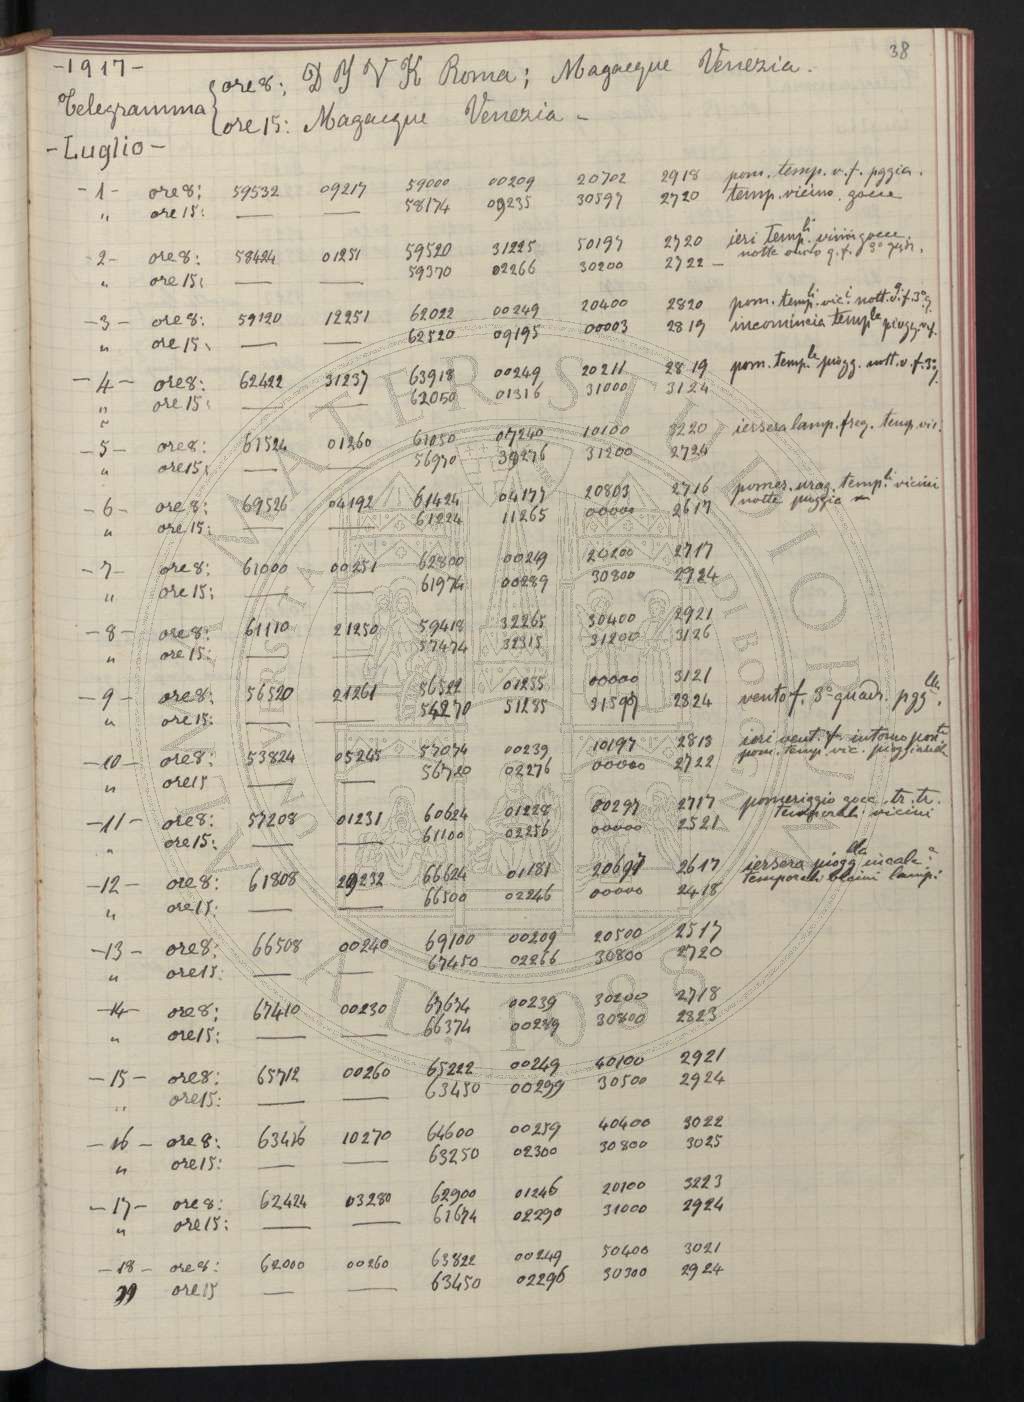 38
-1917-
Telegramma
ore 8: D Y V K Roma; Magacque Venezia.
ore 15: Magacque Venezia -
- Luglio -
-1- ore 8: 59532 09217 59000 00209 20702 2918 pom. temp. v. f. pggia.
" ore 15: — — 58174 09235 30597 2720 temp. vicino gocce
-2- ore 8: 58424 01251 59520 31225 50197 2720 ieri temp.li vicini gocce
notte vento g. f. 3° qudr.
" ore 15: — — 59370 02266 30200 2722 -
-3- ore 8: 59120 12251 62022 00249 20400 2820 pom. temp.li vic.i nott.
" ore 15: — — 62520 09195 00003 2819 incomincia temp.le
-4- ore 8: 62422 31237 63918 00249 20211 2819 pom. temp.le piogg. nott. v. f. 3°
" ore 15: — — 62050 01316 31000 3124
-5- ore 8: 61524 01260 61050 07240 10100 3220 iersera lamp. freq. temp. vic.
" ore 15: — — 56970 39276 31200 2724
-6- ore 8: 69526 04192 61424 04177 20803 2716 pomer. urag. temp.li vicini
notte pioggia
" ore 15: — — 61224 11265 00000 2617
-7- ore 8: 61000 00251 62800 00249 20200 2717
" ore 15: — — 61974 00289 30800 2924
-8- ore 8: 61110 21250 59418 32265 30400 2921
" ore 15: — — 57474 32315 31200 3126
-9- ore 8: 56520 21261 56522 01255 00000 3121
" ore 15: — — 54270 51285 31597 2824 vento f. 3° quadr. pgglla.
-10- ore 8: 53824 05245 57074 00239 10197 2813 ieri vent. f. intorno
pom. temp. vic.
" ore 15 — — 56720 02276 00000 2722
-11- ore 8: 57208 01231 60624 01228 00297 2717 pomeriggio gocc. tr. tr.
temporali vicini
" ore 15: — — 61100 02256 00000 2521
-12- ore 8: 61808 29232 66624 01181 20697 2617 iersera piogglla incalc.a
temporali vicini lampi
" ore 15: — — 66500 02246 00000 2418
-13- ore 8: 66508 00240 69100 00209 20500 2517
" ore 15: — — 67450 02266 30800 2720
-14- ore 8: 67410 00230 67674 00239 30200 2718
" ore 15: — — 66374 00289 30800 2823
-15- ore 8: 65712 00260 65222 00249 40100 2921
" ore 15: — — 63450 00299 30500 2924
-16- ore 8: 63416 10270 64600 00259 40400 3022
" ore 15: — — 63250 02300 30800 3025
-17- ore 8: 62424 03280 62900 01246 20100 3223
" ore 15: — — 61674 02290 31000 2924
-18- ore 8: 62000 00260 63822 00249 50400 3021
" ore 15 — — 63450 02296 30300 2924
ALMA MATER STUDIORUM